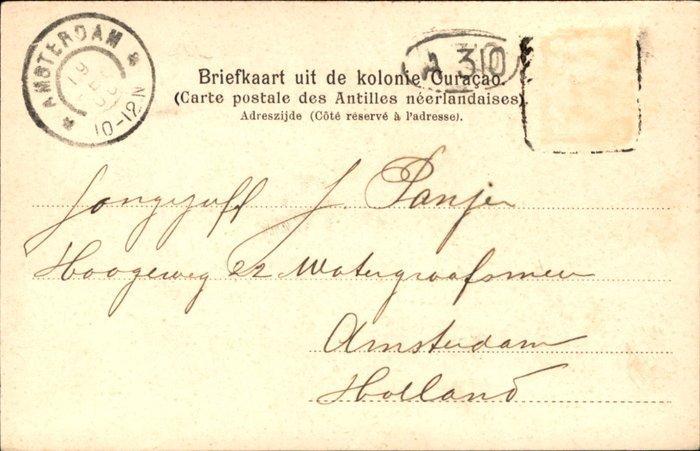 AMSTERDAM
10-12 N
A 310
Briefkaart uit de kolonie Curaçao.
(Carte postale des Antilles néerlandaises)
Adreszijde (Côté réservé à l'adresse).
Jongejuff J. Panjer
Hoogeweg 22 Watergraafsmeer
Amsterdam
Holland